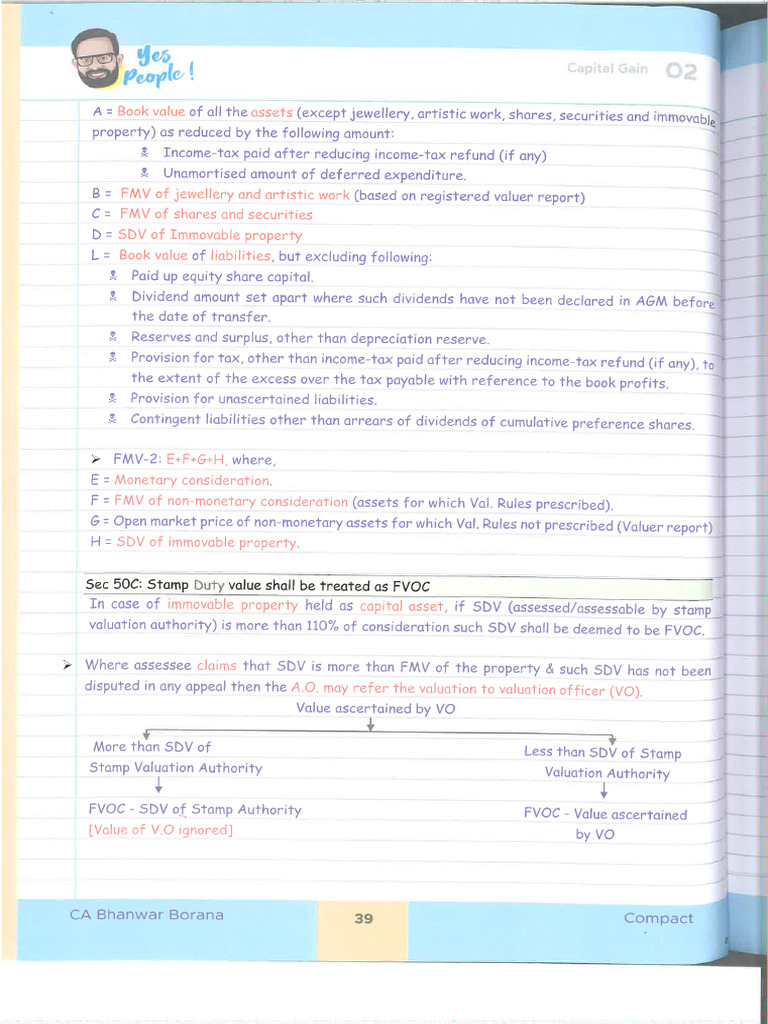 Yes
People!
Capital Gain 02
A = Book value of all the assets (except jewellery, artistic work, shares, securities and immovable
property) as reduced by the following amount:
Income-tax paid after reducing income-tax refund (if any)
Unamortised amount of deferred expenditure.
B = FMV of jewellery and artistic work (based on registered valuer report)
C = FMV of shares and securities
D = SDV of Immovable property
L = Book value of liabilities, but excluding following:
Paid up equity share capital.
Dividend amount set apart where such dividends have not been declared in AGM before
the date of transfer.
Reserves and surplus, other than depreciation reserve.
Provision for tax, other than income-tax paid after reducing income-tax refund (if any), to
the extent of the excess over the tax payable with reference to the book profits.
Provision for unascertained liabilities.
Contingent liabilities other than arrears of dividends of cumulative preference shares.
➢ FMV-2: E+F+G+H, where,
E = Monetary consideration.
F = FMV of non-monetary consideration (assets for which Val. Rules prescribed).
G = Open market price of non-monetary assets for which Val. Rules not prescribed (Valuer report)
H = SDV of immovable property.
Sec 50C: Stamp Duty value shall be treated as FVOC
In case of immovable property held as capital asset, if SDV (assessed/assessable by stamp
valuation authority) is more than 110% of consideration such SDV shall be deemed to be FVOC.
➢ Where assessee claims that SDV is more than FMV of the property & such SDV has not been
disputed in any appeal then the A.O. may refer the valuation to valuation officer (VO).
Value ascertained by VO
More than SDV of
Stamp Valuation Authority
FVOC - SDV of Stamp Authority
[Value of V.O ignored]
Less than SDV of Stamp
Valuation Authority
FVOC - Value ascertained
by VO
CA Bhanwar Borana 39 Compact